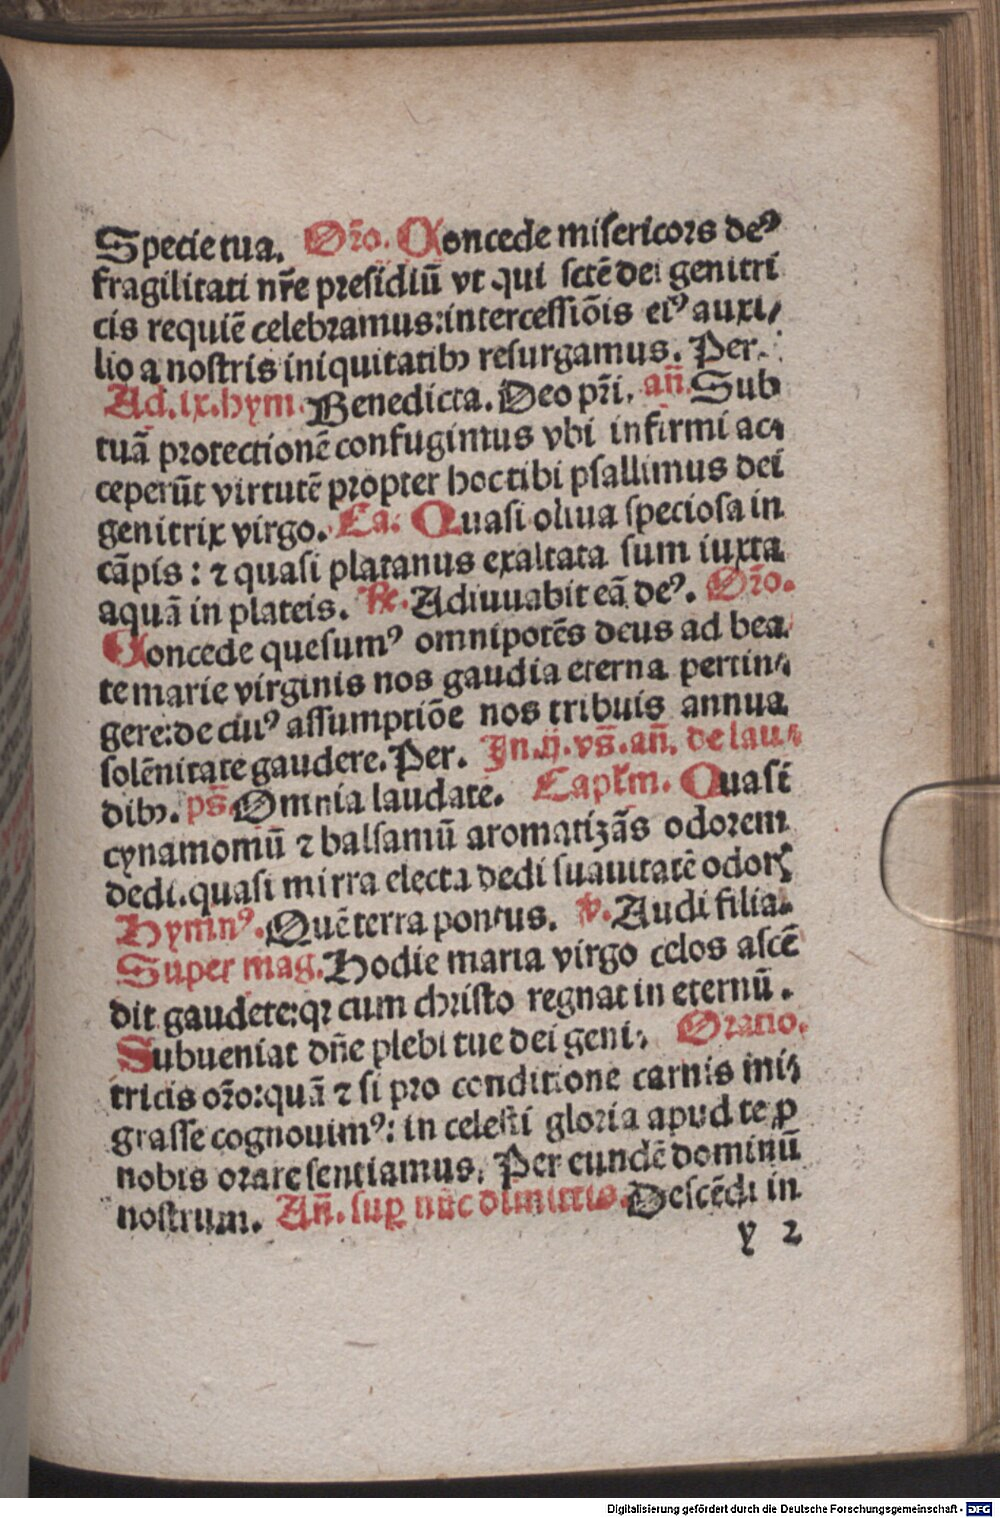 Specie tua. Or̃o. Concede misericors de⁹
fragilitati nr̃e presidiũ vt qui sctẽ dei genitri
cis requiẽ celebramus:intercessiõis ei⁹ auxi/
lio a nostris iniquitatibꝫ resurgamus. Per.
Ad.ix.hym. Benedicta. Deo pr̃i. añ. Sub
tuã protectionẽ confugimus vbi infirmi ac/
ceperũt virtutẽ propter hoc tibi psallimus dei
genitrix virgo. Ca. Quasi oliua speciosa in
cãpis: ⁊ quasi platanus exaltata sum iuxta
aquã in plateis. ꝶ. Adiuuabit eã de⁹. Or̃o.
Concede quesum⁹ omnipotẽs deus ad bea
te marie virginis nos gaudia eterna pertin/
gere:de cui⁹ assumptiõe nos tribuis annua
solẽnitate gaudere. Per. In.ij.vs̃.añ. de lau/
dibꝫ. ps̃. Omnia laudate. Capl̃m. Quasi
cynamomũ ⁊ balsamũ aromatizãs odorem
dedi.quasi mirra electa dedi suauitatẽ odorꝭ
Hymn⁹. Quẽ terra pontus. ℣. Audi filia.
Super mag. Hodie maria virgo celos ascẽ
dit gaudete:qꝛ cum christo regnat in eternũ.
Subueniat dñe plebi tue dei geni/ Oratio.
tricis or̃o:quã ⁊ si pro conditione carnis mi/
grasse cognouim⁹: in celesti gloria apud te ꝓ
nobis orare sentiamus. Per eundẽ dominũ
nostrum. Añ. suꝑ nũc dimittis. Descẽdi in
y 2
Digitalisierung gefördert durch die Deutsche Forschungsgemeinschaft - DFG